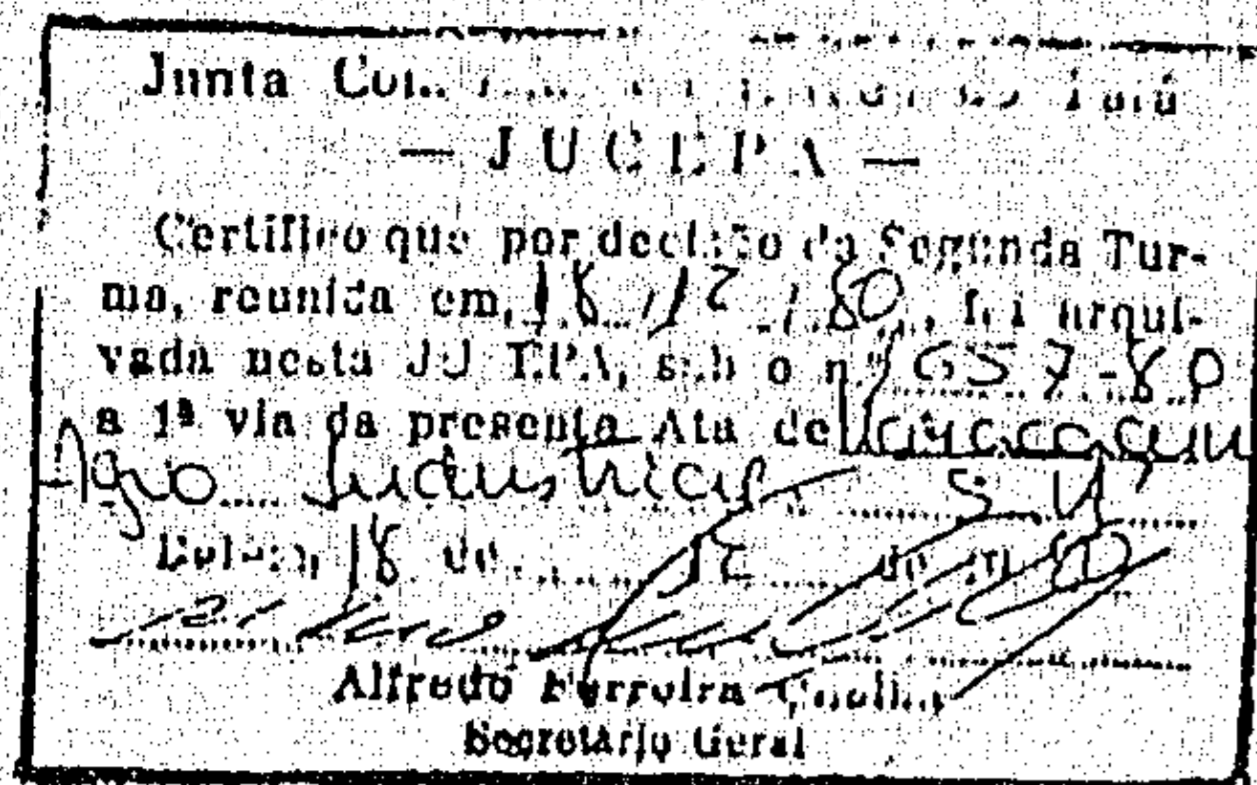 Junta Com do Pará
— JUCEPA —
Certifico que por decisão da Segunda Tur-
ma, reunida em, 18 / 12 / 80, foi arqui-
vada nesta JUCEPA, sob o n.º 657-80
a 1ª via da presente Ata de
Agro Industrial S/A
Belém, 18 de 12 de 19 80
Alfredo Ferreira Coelho
Secretário Geral